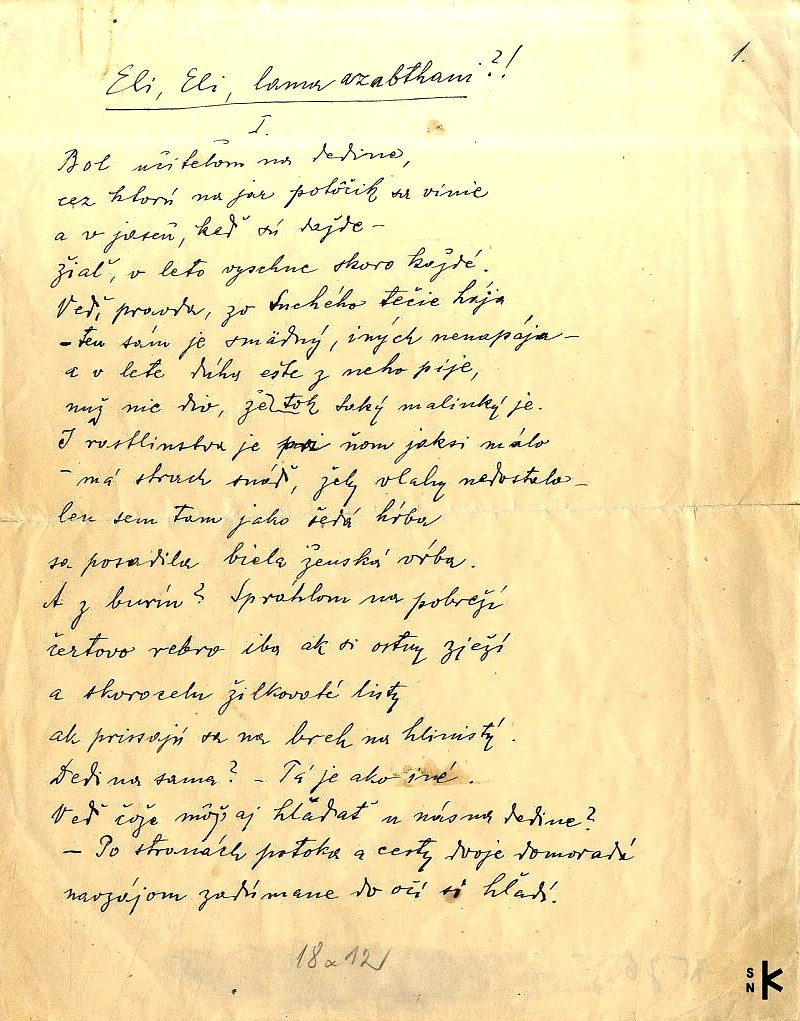 1.
Eli, Eli, lama azabthani?!
I.
Bol učiteľom na dedine,
cez ktorú na jar potôčik sa vinie
a v jaseň, keď sú dažde –
žiaľ, v leto vyschne skoro každé.
Veď, pravda, zo Suchého tečie hája
– ten sám je smädný, iných nenapája –
a v lete dúha ešte z neho pije,
nuž nie div, že tok taký malinký je.
I rastlinstva je pri ňom jaksi málo
– má strach snáď, žeby vlahy nedostalo –
len sem tam jako šedá hŕba
sa posadila biela ženská vŕba.
A z burín? Spráhlom na pobreží
čertovo rebro iba ak si ostny zježí
a skorocelu žilkovaté listy
ak prissajú sa na breh na hlinistý.
Dedina sama? – Tá je ako iné.
Veď čože môž' aj hľadať u nás na dedine?
– Po stranách potoka a cesty dvoje domoradí
navzájom zadúmane do očí si hľadí.
18 x 12
SNK